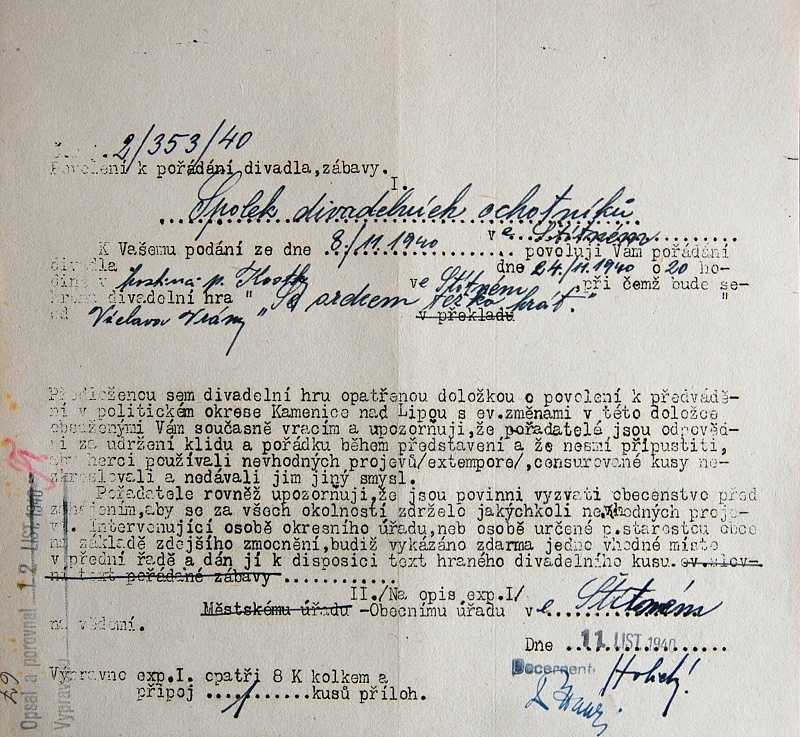 2/353/40
Povolení k pořádání divadla,zábavy.
I.
Spolek divadelních ochotníků
v e Štítném
K Vašemu podání ze dne 8./11.1940 povoluji Vám pořádání
divadla dne 24./11.1940 o 20 ho-
dině v hostinci p. Kostky ve Štítném při čemž bude se-
hrána divadelní hra " Se srdcem těžko hrát. "
od Václava Vrány v překladu
Předloženou sem divadelní hru opatřenou doložkou o povolení k předvádě-
ní v politickém okrese Kamenice nad Lipou s ev.změnami v této doložce
obsaženými Vám současně vracím a upozorňuji,že pořadatelé jsou odpověd-
ni za udržení klidu a pořádku během představení a že nesmí připustiti,
aby herci používali nevhodných projevů/extempore/,censurované kusy ne-
zkreslovali a nedávali jim jiný smysl.
Pořadatele rovněž upozorňuji,že jsou povinni vyzvati obecenstvo před
zahájením,aby se za všech okolností zdrželo jakýchkoli nevhodných proje-
vů. Intervenující osobě okresního úřadu,neb osobě určené p.starostou obce
na základě zdejšího zmocnění,budiž vykázáno zdarma jedno vhodné místo
v přední řadě a dán jí k disposici text hraného divadelního kusu. ev.slov-
ní text pořádané zábavy
II./Na opis exp.I/
Městskému úřadu -Obecnímu úřadu v e Štítném
na vědomí.
Dne 11 LIST.1940
Výpravno exp.I. opatři 8 K kolkem a
připoj 1 kusů příloh.
Decernent:
Opsal a porovnal 12 LIST.1940